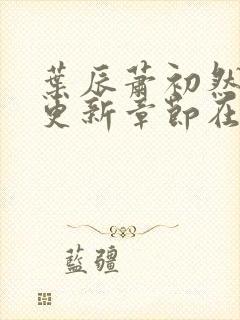 葉辰蕭初然
更新章節在
藍疆